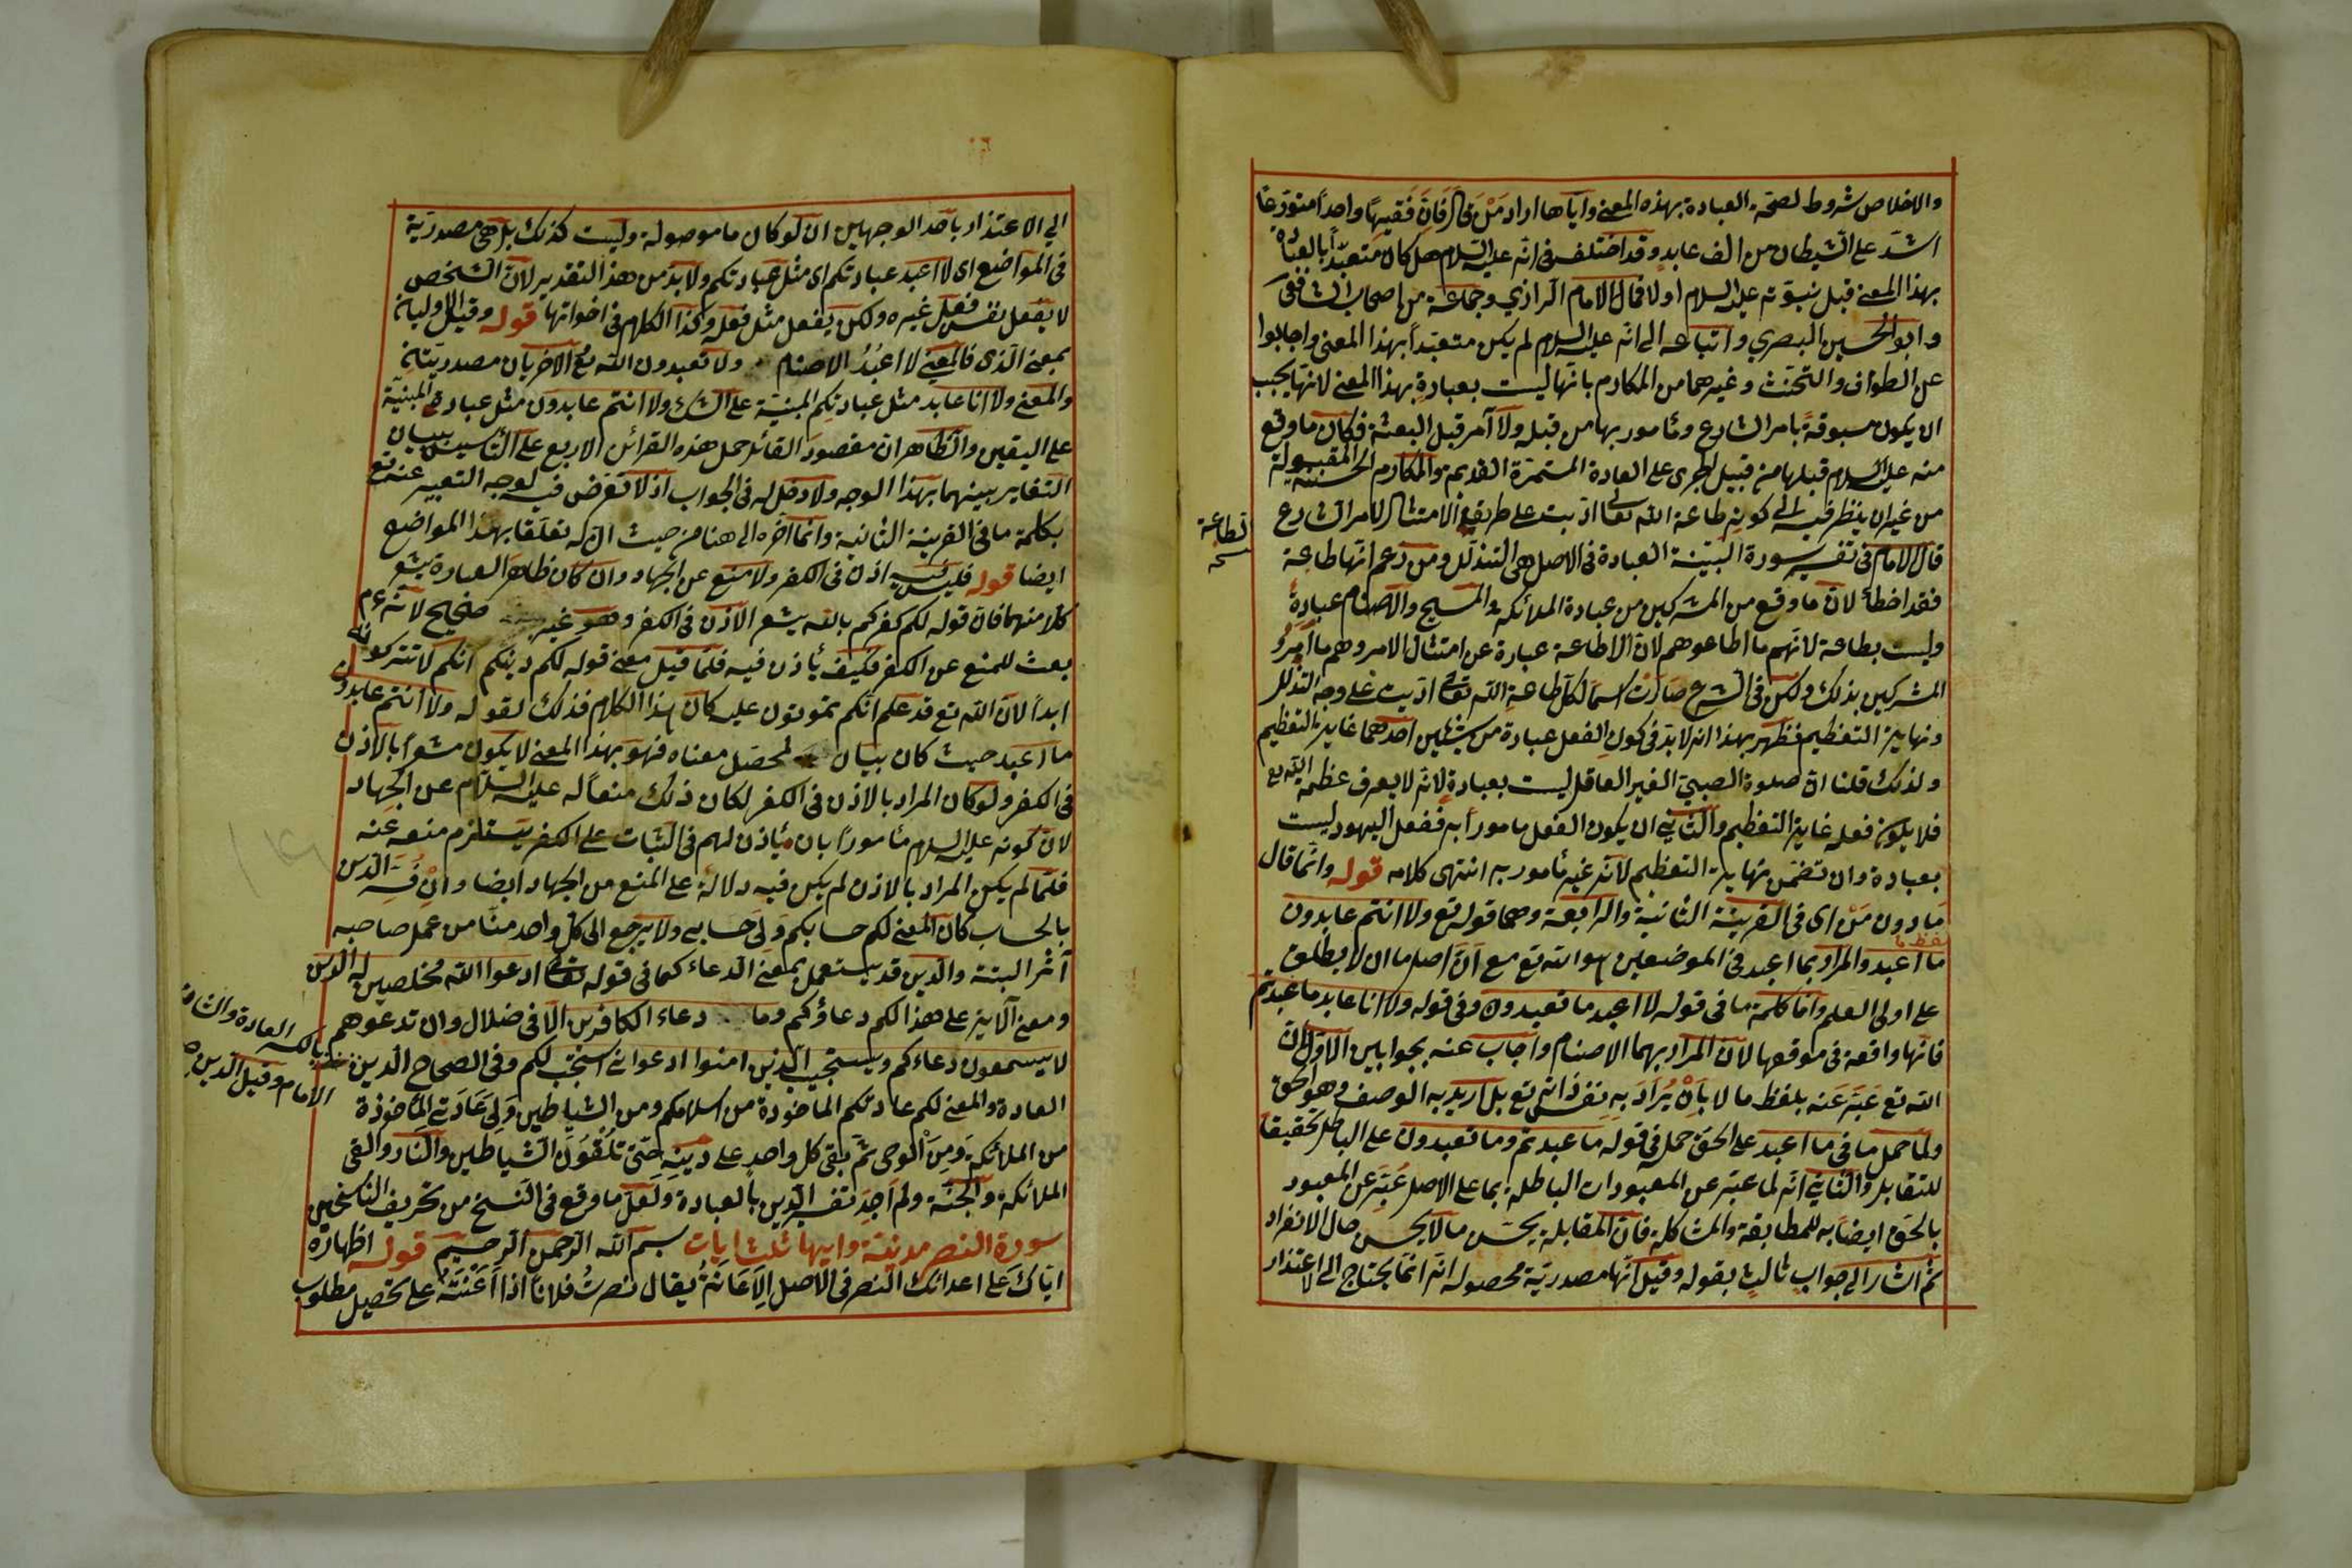 والاخلاص شروط لصحة العبادة بهذه المعنى واياها اراد من قال فان فقيها واحدا متورعا
اشد على الشيطان من الف عابد وقد اختلف فى انه عليه السلام هل كان متعبدا بالعبادة
بهذا المعنى قبل نبوته عليه السلام اولا فقال الامام الرازي وجماعة من اصحاب الشافعى
وابو الحسين البصري واتباعه الى انه عليه السلام لم يكن متعبدا بهذا المعنى واجابوا
عن الطواف والتحنث وغيرهما من المكارم بانها ليست بعبادة بهذا المعنى لانها يجب
ان يكون مسبوقة بامر الشارع ومأمور بها من قبله ولا آمر قبل البعثة فكان ما وقع
منه عليه السلام قبلها من قبيل الجرى على العادة المستمرة القديمة والمكارم الحسنة المقبولة
من غير ان ينظر فيه الى كونه طاعة الله تعالى اذ بيت على طريق الامتثال لامر الشارع
قال الامام فى تفسير سورة البينة العبادة فى الاصل هى التذلل ومن زعم انها طاعة
الطاعة
نسخه
فقد اخطأ لان ما وقع من المشركين من عبادة الملائكة والمسيح والاصنام عبادة
وليست بطاعة لانهم ما اطاعوهم لان الاطاعة عبارة عن امتثال الامر وهم ما امروا
المشركين بذلك ولكن فى الشرع صارت اسما لكل طاعة الله تعالى اديت على وجه التذلل
ونهاية التعظيم فظهر بهذا انه لابد فى كون الفعل عبادة من شيئين احدهما غاية التعظيم
ولذلك قلنا ان صلوة الصبي الغير العاقل ليست بعبادة لانه لا يعرف عظمة الله تع
فلا يكون فعله غاية التعظيم والثاني ان يكون الفعل مامورا به ففعل اليهود ليست
بعبادة وان تضمن نهاية التعظيم لانه غير مأمور به انتهى كلامه قوله وانما قال
ما دون من اى فى القرينة الثانية والرابعة وهما قوله تع ولا انتم عابدون
ما اعبد والمراد بما اعبد فى الموضعين هو الله تع مع ان اصل ما ان لا يطلق
لفظ ما
على اولى العلم واما كلمة ما فى قوله لا اعبد ما تعبدون وفى قوله ولا انا عابد ما عبدتم
فانها واقعة فى موقعها لان المراد بهما الاصنام واجاب عنه بجوابين الاول ان
الله تع عبر عنه بلفظ ما لا بان يراد به نفس ذاته تع بل اريد به الوصف وهو الحق
ولما حمل ما فى ما اعبد على الحق حمله فى قوله ما عبدتم وما تعبدون على الباطل تحقيقا
للتقابل والثاني انه لما عبر عن المعبودات الباطلة بما على الاصل عبر عن المعبود
بالحق ايضا به للمطابقة والمشاكلة فان المقابلة يحسن ما لا يحسن حال الانفراد
ثم اشار الى جواب ثالث بقوله وقيل انها مصدرية محصوله انه انما يحتاج الى الاعتذار
الى الاعتذار باحد الوجهين ان لو كان ما موصولة وليست كذلك بل هى مصدرية
فى المواضع اى لا اعبد عبادتكم اى مثل عبادتكم ولا بد من هذا التقدير لان الشخص
لا يفعل نفس فعل غيره ولكن يفعل مثل فعله وكذا الكلام فى اخواتها قوله وقيل الاوليان
بمعنى الذى فالمعنى لا اعبد الاصنام ولا تعبدون الله تع الاخريان مصدريتان
والمعنى ولا انا عابد مثل عبادتكم المبنية على الشك ولا انتم عابدون مثل عبادتى المبنية
على اليقين والظاهر ان مقصود القائل حمل هذه القرائن الاربع على التأسيس ببيان
التغاير بينهما بهذا الوجه ولا دخل له فى الجواب اذ لا تعرض فيه لوجه التعبير عنه تع
بكلمة ما فى القرينة الثانية وانما آخره الى هنا من حيث ان له تعلقا بهذا المواضع
ايضا قوله فليس فيه اذن فى الكفر ولا منع عن الجهاد وان كان ظاهر العبارة يشعر
كلا منهما فان قوله لكم كفركم بالله يشعر الاذن فى الكفر وهو غير صحيح لانه ع م
بعث للمنع عن الكفر فكيف يأذن فيه فلما قيل معنى قوله لكم دينكم انكم لا تتركونه
ابدا لان الله تع قد علم انكم تموتون عليه كان هذا الكلام فذلك لقوله ولا انتم عابدون
ما اعبد حيث كان بيان لمحصل معناه فهو بهذا المعنى لا يكون مشعرا بالاذن
فى الكفر ولو كان المراد بالاذن فى الكفر لكان ذلك منعا له عليه السلام عن الجهاد
لان كونه عليه السلام مأمورا بان يأذن لهم فى الثبات على الكفر يستلزم منعه عنه
فلما لم يكن المراد بالاذن لم يكن فيه دلالة على المنع من الجهاد ايضا وان فسر الدين
بالحساب كان المعنى لكم حسابكم ولى حسابى ولا يرجع الى كل واحد منا من عمل صاحبه
آثر البتة والدين قد يستعمل بمعنى الدعاء كما فى قوله تعالى ادعوا الله مخلصين له الدين
ومعنى الآية على هذا لكم دعاؤكم وما دعاء الكافرين الا فى ضلال وان تدعوهم
لا يسمعون دعاءكم ويستجيب الذين امنوا ادعوانى استجب لكم وفى الصحاح الدين
بالكسر العادة والشان
الامام وقيل الدين
العادة والمعنى لكم عادتكم الماخوذة من اسلافكم ومن الشياطين ولى عادتى المأخوذة
من الملائكة ومن الوحى ثم يبقى كل واحد على دينه حتى تلقون الشياطين والنار والقى
الملائكة والجنة ولم اجد تفسير الدين بالعبادة ولعل ما وقع فى النسخ من تحريف الناسخين
سورة النصر مدنية وايها ثلث ايات بسم الله الرحمن الرحيم قوله اظهاره
اياك على اعدائك النصر فى الاصل الاعانة يقال نصرت فلانا اذا اعنته على تحصيل مطلوب